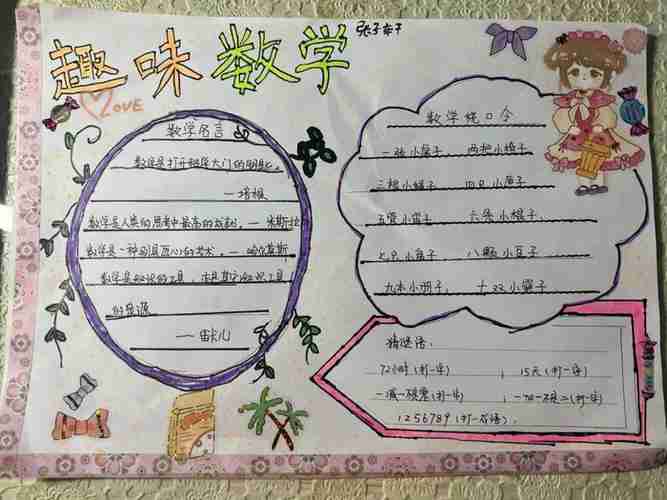 趣味数学
LOVE
数学名言
数学是打开科学大门的钥匙。
—培根
数学是人类的思考中最高的成就。—米斯拉
数学是一种别具匠心的艺术。—哈尔莫斯
数学是知识的工具,亦是其它知识工具
的泉源
—笛卡儿
数学绕口令
一张小桌子 两把小椅子
三根小绳子 四只小
五管小笛子 六条小棍子
七只小盒子 八颗小豆子
九本小册子 十双小
猜谜语:
72小时(打一字) ; 15天(打一字)
一减一不是零(打一字) ; 一加一不是二(打一字)
1256789(打一成语).